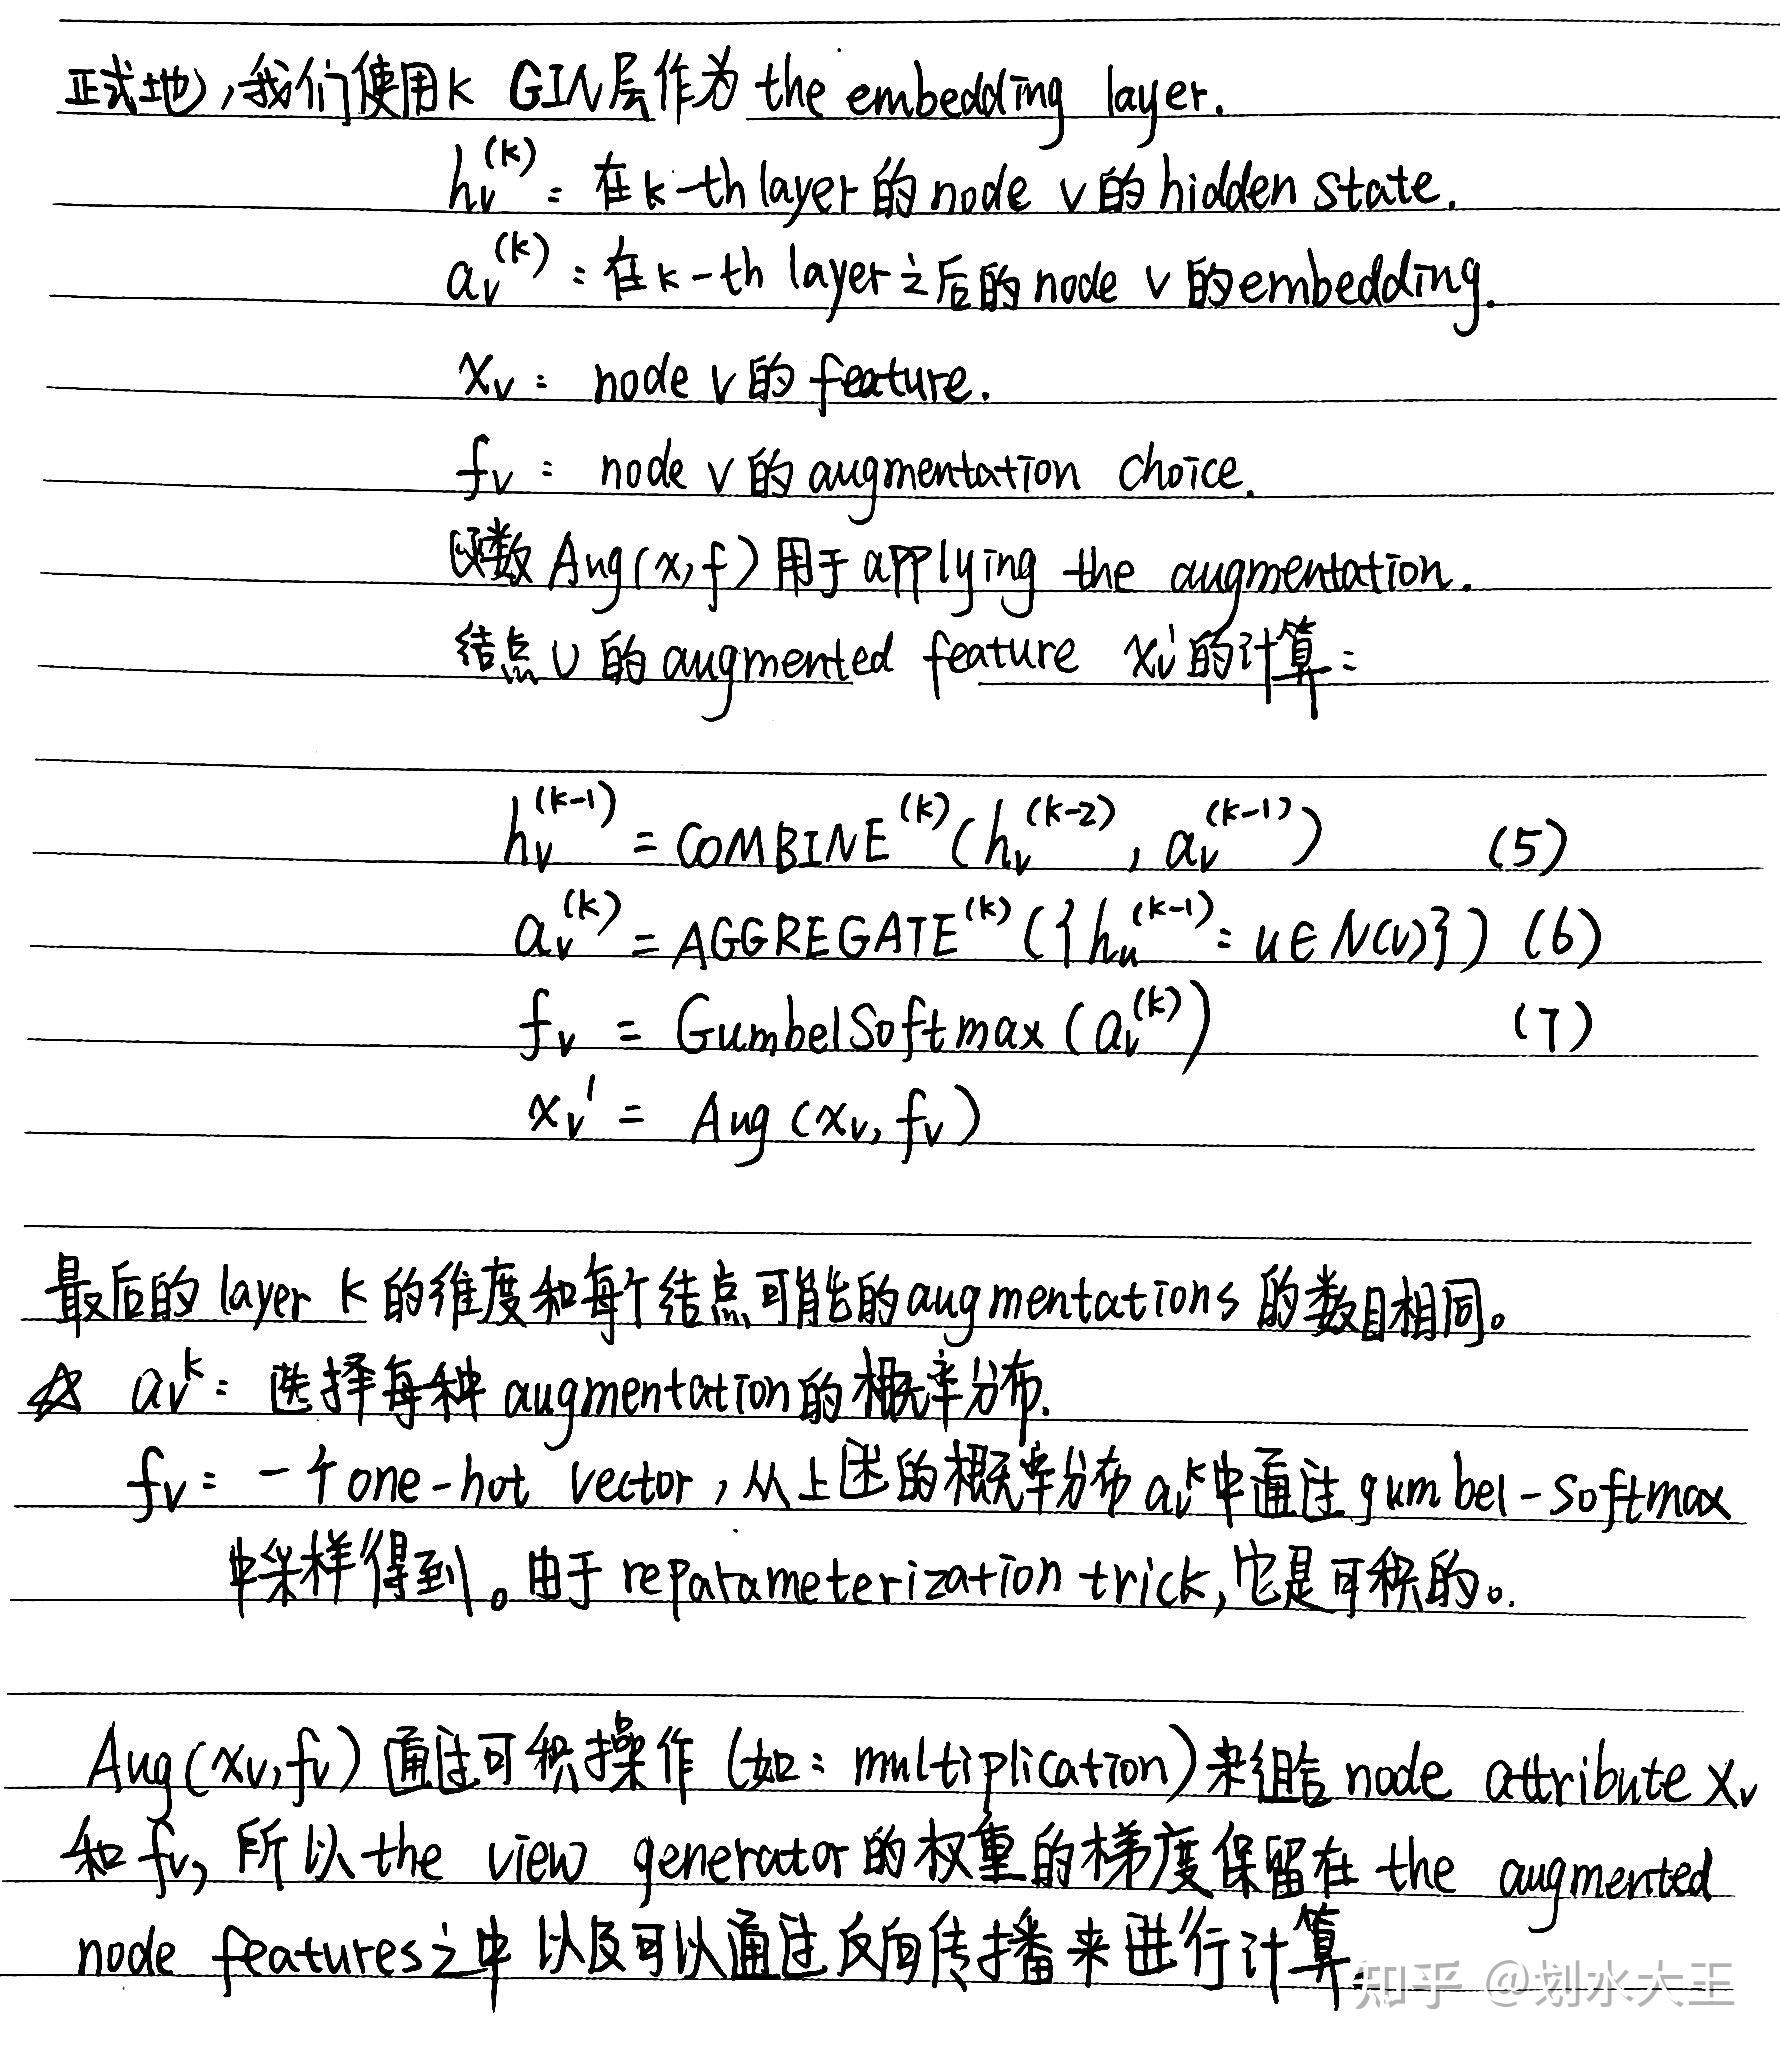 正式地，我们使用k GIN层作为 the embedding layer.
hv^(k)：在k-th layer的node v的hidden state.
av^(k)：在k-th layer之后的node v的embedding.
xv： node v的feature.
fv： node v的augmentation choice.
函数 Aug(x,f)用于applying the augmentation.
结点v的augmented feature xv'的计算：
hv^(k-1) = COMBINE^(k)(hv^(k-2), av^(k-1)) (5)
av^(k) = AGGREGATE^(k)({hu^(k-1): u∈N(v)}) (6)
fv = GumbelSoftmax(av^(k)) (7)
xv' = Aug(xv, fv)
最后的 layer k 的维度和每个结点可能的augmentations 的数目相同。
☆ av^k：选择每种 augmentation的概率分布.
fv：一个one-hot vector，从上述的概率分布av^k中通过gumbel-softmax
中采样得到。由于reparameterization trick, 它是可积的。.
Aug(xv,fv)通过可积操作(如：multiplication)来组合node attribute xv
和fv, 所以the view generator的权重的梯度保留在the augmented
node features之中以及可以通过反向传播来进行计算.
知乎 @划水大王